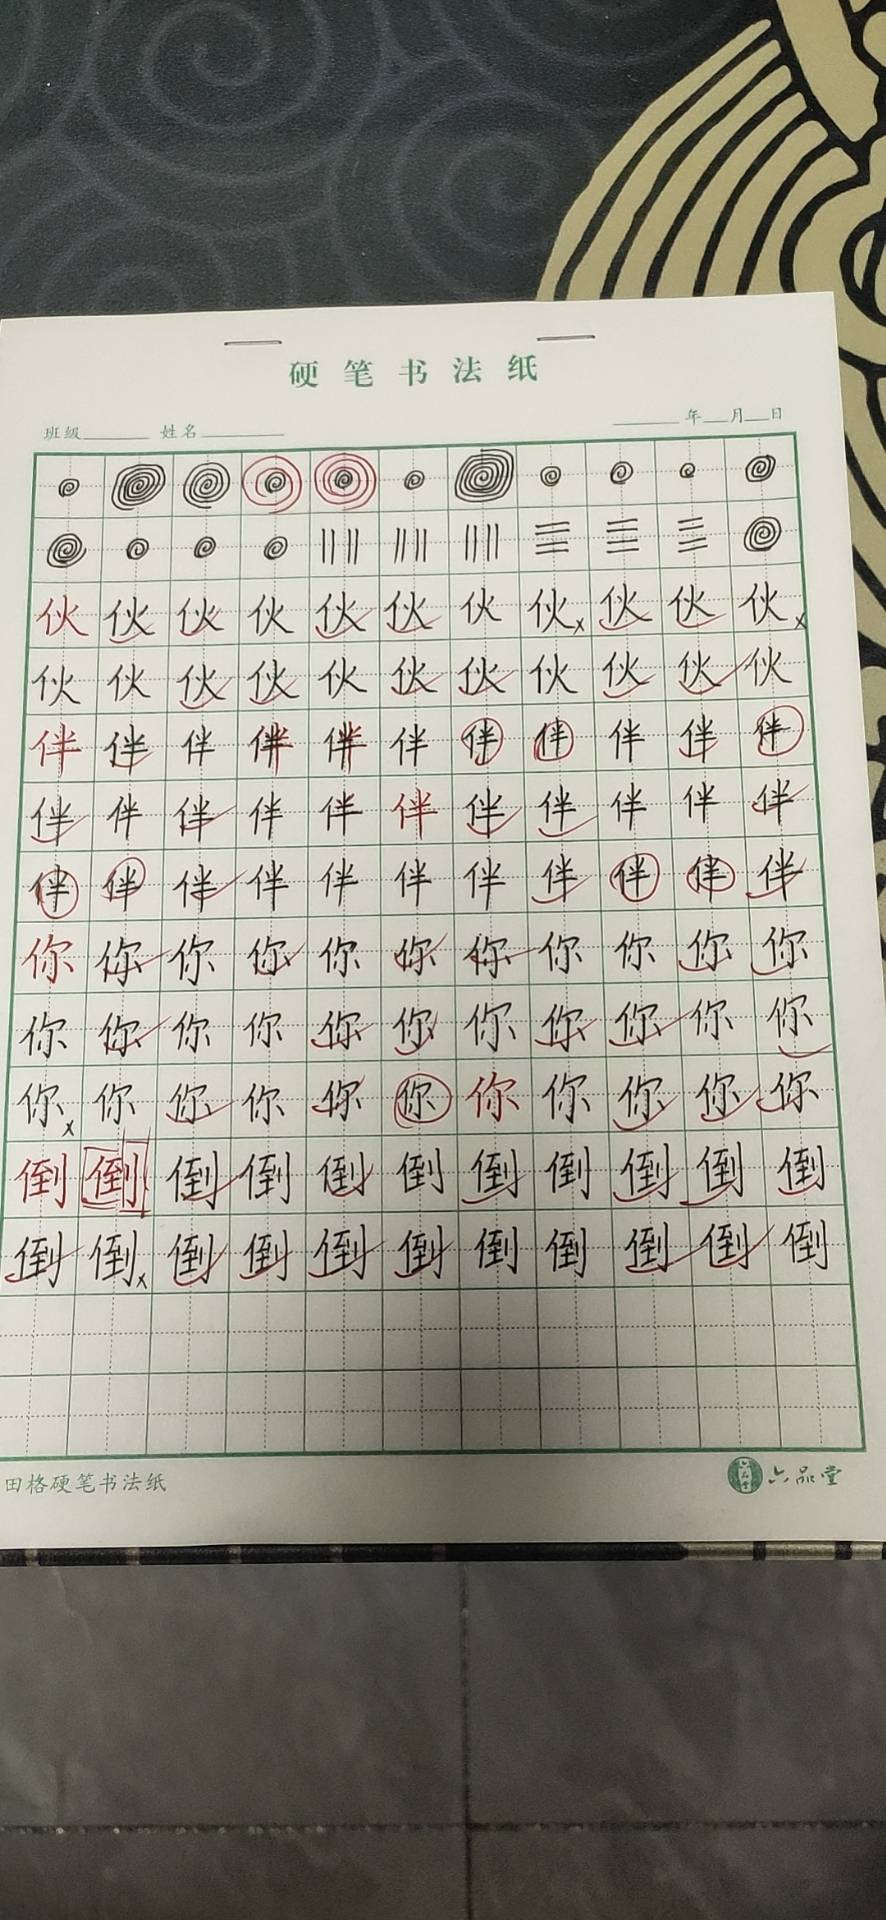 硬笔书法纸
班级 姓名 年 月 日
伙伙伙伙伙伙伙伙伙伙伙
伙伙伙伙伙伙伙伙伙伙伙
伴伴伴伴伴伴伴伴伴伴伴
伴伴伴伴伴伴伴伴伴伴伴
伴伴伴伴伴伴伴伴伴伴伴
你你你你你你你你你你你
你你你你你你你你你你你
你你你你你你你你你你你
倒倒倒倒倒倒倒倒倒倒倒
倒倒倒倒倒倒倒倒倒倒倒
田格硬笔书法纸 六品堂